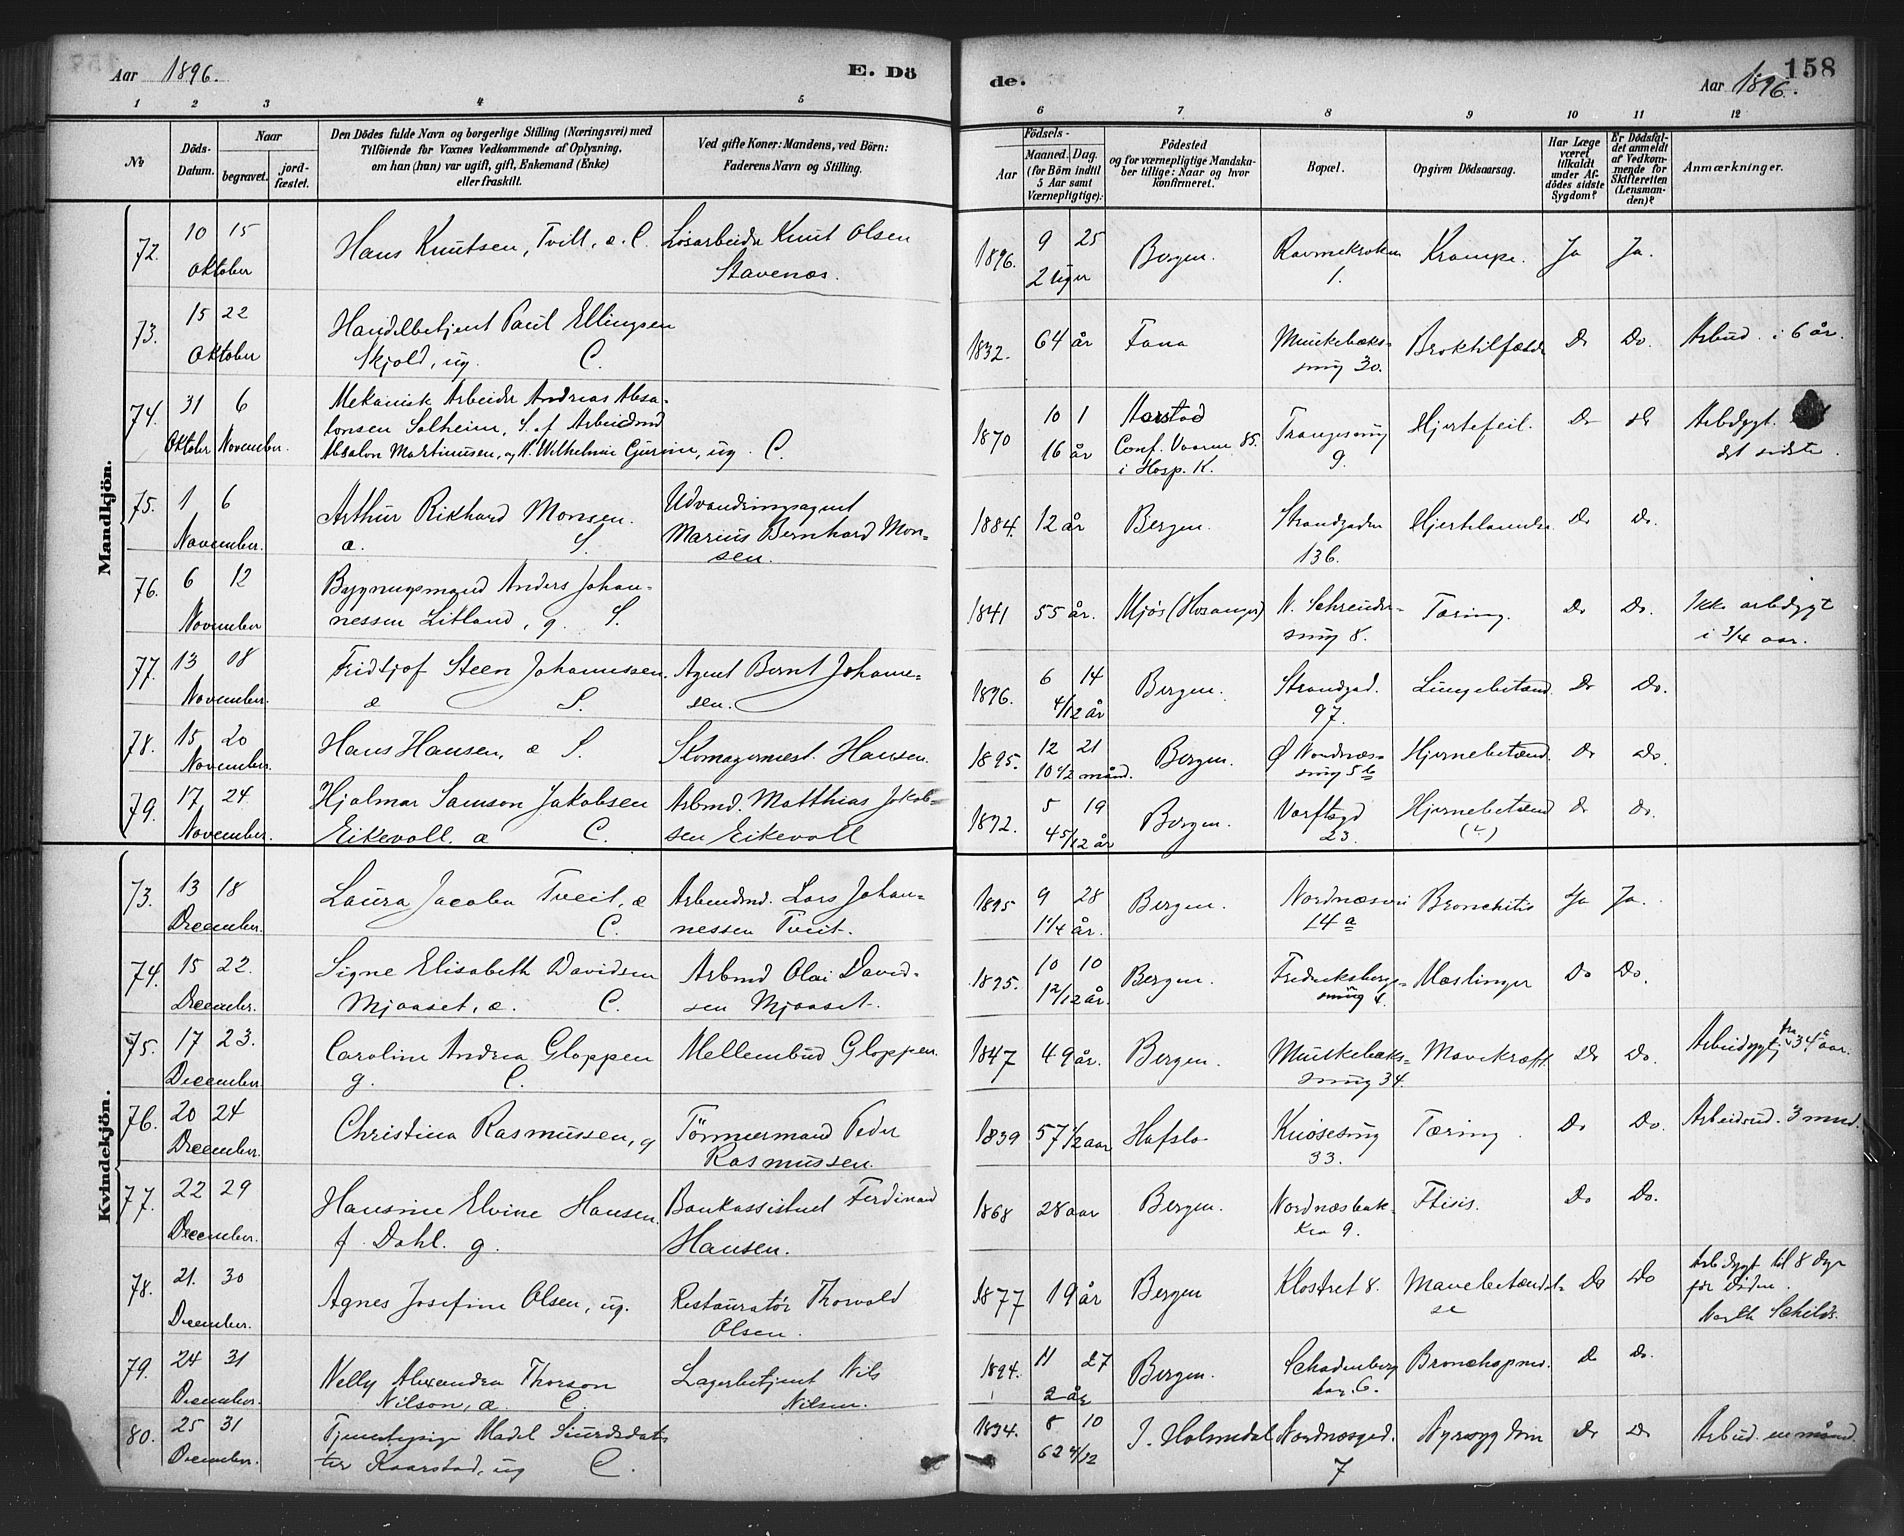 Aar 1896.
E. Dö
de.
158
Aar 1896.
1 2 3 4 5
6 7 8 9 10 11 12
No
Döds-Datum.
Naar
begravet.
jordfæstet.
Den Dödes fulde Navn og borgerlige Stilling (Næringsvei) med
Tilföiende for Voxnes Vedkommende af Oplysning,
om han (hun) var ugift, gift, Enkemand (Enke)
eller fraskilt.
Ved gifte Koner: Mandens, ved Börn:
Faderens Navn og Stilling.
Födsels-
Aar
Maaned. Dag.
(for Börn indtil
5 Aar samt
Værnepligtige):
Födested
og for værnepligtige Mandskaber tillige: Naar og hvor
konfirmeret.
Bopæl.
Opgiven Dödsaarsag.
Har Læge
været
tilkaldt
under Afdödes sidste
Sygdom?
Er Dödsfaldet anmeldt
af Vedkommende for
Skifteretten
(Lensmanden)?
Anmærkninger.
Mandkjön.
72. 10 15 Oktober Hans Knutsen, Tvill., æ. C. Løsarbeider Knut Olsen
Stavenæs.
1896. 9 25 2 uger Bergen. Ravnekroken 1. Krampe. Ja Ja.
73. 15 22 Oktober Handelbetjent Paul Ellingsen
Skjold, ug. C.
1832. 64 år Fana Munkebæks-
smug 30. Do Do. Arbud. i 6 år.
74. 31 Oktober 6 November. Mekanisk Arbeider Andreas Absa-
lonsen Solheim, S. af Arbeidsmd
Absalon Martinusen, og ug. C.
1870 10 1 16 år Aarstad
Conf. Vaaren 85.
i Hosp. K. 9. Hjertefeil. Do do Arbdygt.
det sidste.
75. 1 6 November. Arthur Rikhard Monsen.
æ. S. Udvandringsagent
Marius Bernhard Mon-
sen.
1884. 12 år Bergen. Strandgaden
136. Do Do.
76. 6 12 November Bygningsmand Anders Johan-
nessen Litland, g. S.
1841 55 år. Mjøs (Hosanger) smug 8. Tæring. Do Do. Ikke arbdygt
i 3/4 aar.
77. 13 18 November. Fridtjof Steen Johannssen.
æ S. Agent Bernt Johann-
sen.
1896. 6 14 4/12 år Bergen. Strandgad.
97. Lungebetænd. Do Do.
78. 15 20 November. Hans Hansen, æ S. Skomagermest. Hansen.
1895. 12 21 10 1/2 månd. Bergen. Ø Nordnæs-
smug 5 b Hjernebetænd. Do Do.
79. 17 24 November. Hjalmar Samson Jakobsen
Eikevoll. æ C. Arbmd. Matthias Jakob-
sen Eikevoll
1892. 5 19 4 5/12 år Bergen. Værftsgd
23. Hjernebetænd Do do.
Kvindekjön.
73. 13 18 December. Laura Jacoba Tveit, æ
C. Arbeidmd. Lars Johan-
nessen Tveit.
1895 9 28 1 1/4 år. Bergen. Nordnæsvei
14 a Bronchitis Ja Ja.
74. 15 22. December. Signe Elisabeth Davidsen
Mjaaset, æ. C. Arbmd Olai David-
sen Mjaaset.
1895. 10 10 1 2/12 år. Bergen. Fredriksbergs-
smug 4. Mæslinger Do Do.
75. 17 23. December. Caroline Andrea Gloppen
g. C. Mellembud Gloppen.
1847 49 år. Bergen. Munkebæks-
smug 34. Mavekræft. Do Do. Arbeidsygt.
76. 20 24 December. Christina Rasmussen, g Tømmermand Peder
Rasmussen.
1839 57 1/2 aar Hafslo Knøsesmug
33. Tæring. Do Do. Arbeidsud. 3 mnd.
77. 22 29 December. Hansine Elvine Hansen.
f. Dahl. g. Bankassistent Ferdinand
Hansen.
1868 28 aar Bergen. Nordnæsbak-
ken 9. Ftisis. Do Do.
78. 21. 30 December. Agnes Josefine Olsen, ug. Restauratør Thorvald
Olsen.
1877 19 år Bergen Klostret 8. Mavebetændel-
se Do Do Arbdygt til 8 dge
før Døden.
79. 24 31 December. Nelly Alexandra Thorson
Nilson, æ. C. Lagerbetjent Nils
Nilsen.
1894. 11 27 2 år Bergen. 6. Bronchopneu. Do Do.
80. 25 31 December. Sjurdsdat-
ter Kaarstad, ug C.
1834. 8 10 62 4/12 I. Holmedal Nordnæsgad.
7 Nyresygdom Do Do Arbud. en månd.